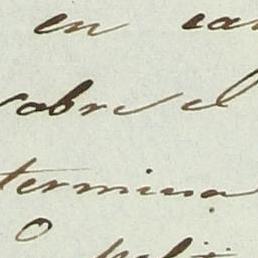 en ca
sobre el
termina